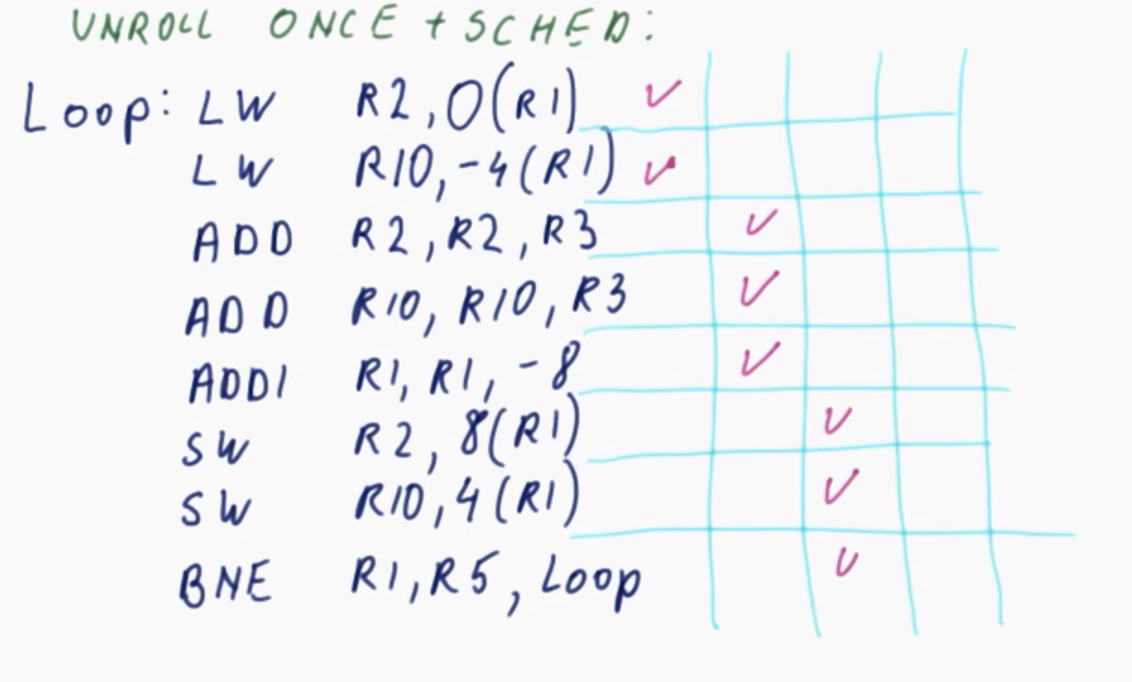 UNROLL ONCE + SCHED:
Loop: LW R2, 0(R1) ✓
LW R10, -4(R1) ✓
ADD R2, R2, R3 ✓
ADD R10, R10, R3 ✓
ADDI R1, R1, -8 ✓
SW R2, 8(R1) ✓
SW R10, 4(R1) ✓
BNE R1, R5, Loop ✓